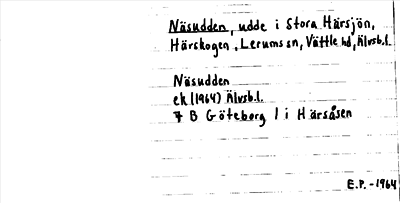 Näsudden, udde i Stora Härsjön,
Härskogen, Lerums sn, Vättle hd, Älvsb.l.
Näsudden
ek (1964) Älvsb.l.
7 B Göteborg 1 i Härsåsen
E.P. - 1964